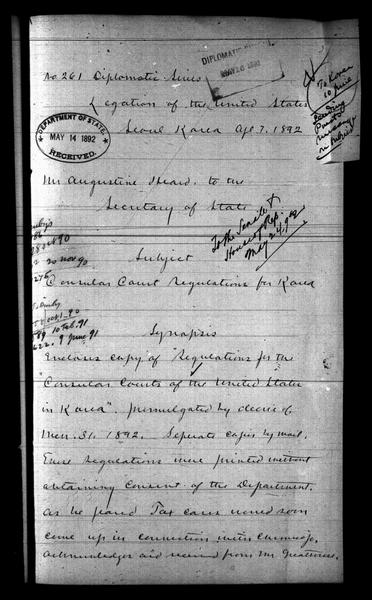 No 261 Diplomatic Series
DIPLOMATIC
MAY 26 1892
Legation of the United States
Seoul Korea Apl. 7, 1892
DEPARTMENT OF STATE,
MAY 14 1892
RECEIVED.
To Korea
10 June
President's
message
Mr Augustine Heard to the
Secretary of State
To the Senate &
House of Rep.
May 24, 92
20 Nov 90
Subject
Consular Court Regulations for Korea
10 Feb. 91
9 June 91
Synopsis
Encloses copy of "Regulations for the
"Consular Courts of the United States
in Korea". promulgated by decree of
Mch. 31. 1892. Seperate copies by mail.
These regulations were printed without
obtaining consent of the Department.
as he feared Tax cases would soon
come up in connection with Chemulpo.
acknowledges aid received from Mr Greathouse.